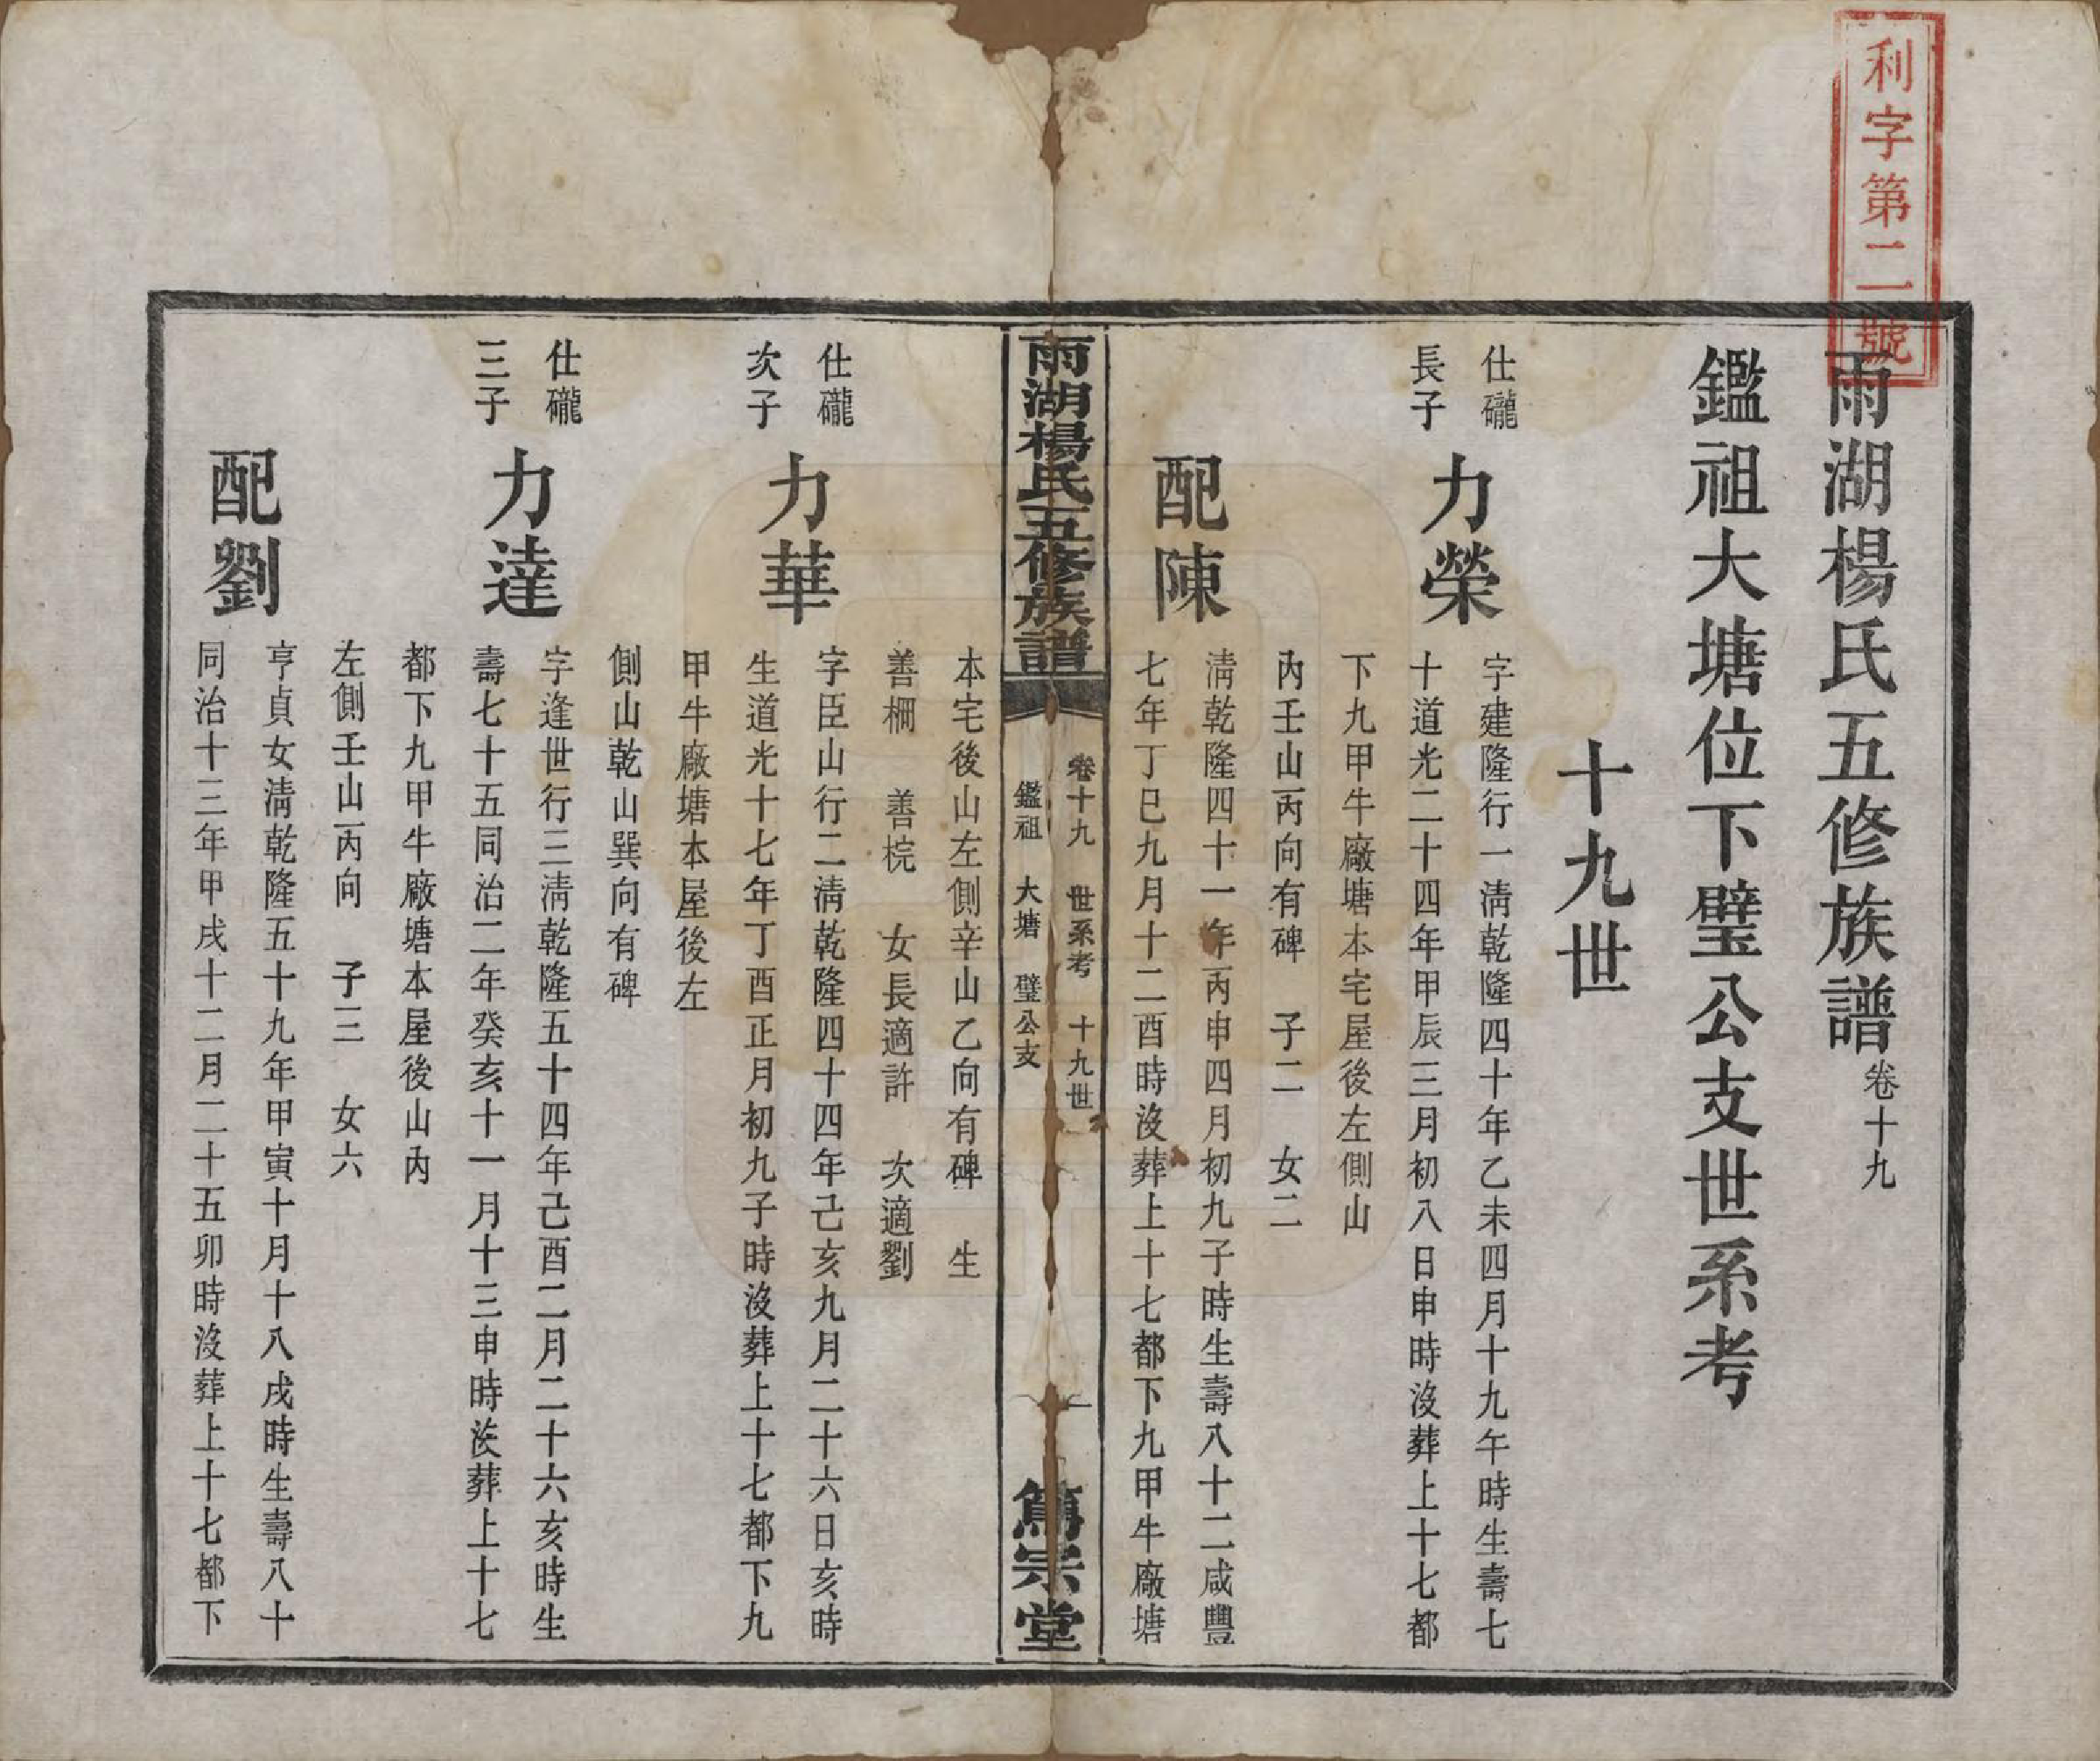 利字第二號
雨湖楊氏五修族譜卷十九
鑑祖大塘位下璧公支世系考
十九世
仕礲
長子
力榮
字建隆行一淸乾隆四十年乙未四月十九午時生壽七
十道光二十四年甲辰三月初八日申時沒葬上十七都
下九甲牛廠塘本宅屋後左側山
內壬山丙向有碑 子二 女二
配陳
淸乾隆四十一年丙申四月初九子時生壽八十二咸豐
七年丁巳九月十二酉時沒葬上十七都下九甲牛廠塘
雨湖楊氏五修族譜
卷十九 世系考 十九世
鑑祖 大塘 璧公支
篤宗堂
本宅後山左側辛山乙向有碑 生
善棡 善梡 女長適許 次適劉
仕礲
次子
力華
字臣山行二淸乾隆四十四年己亥九月二十六日亥時
生道光十七年丁酉正月初九子時沒葬上十七都下九
甲牛廠塘本屋後左
側山乾山巽向有碑
仕礲
三子
力達
字逢世行三淸乾隆五十四年己酉二月二十六亥時生
壽七十五同治二年癸亥十一月十三申時沒葬上十七
都下九甲牛廠塘本屋後山內
左側壬山丙向 子三 女六
配劉
亨貞女淸乾隆五十九年甲寅十月十八戌時生壽八十
同治十三年甲戌十二月二十五卯時沒葬上十七都下